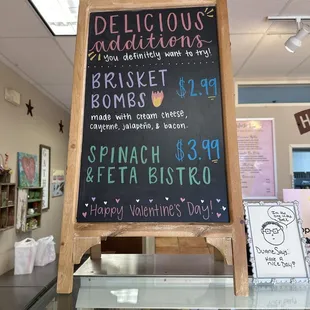 DELICIOUS
additions
you definitely want to try!
BRISKET $2.99
BOMBS
made with cream cheese,
cayenne, jalapeño, & bacon.
SPINACH $3.99
& FETA BISTRO
Happy Valentine's Day!
Duane Says:
Have a
nice Day!